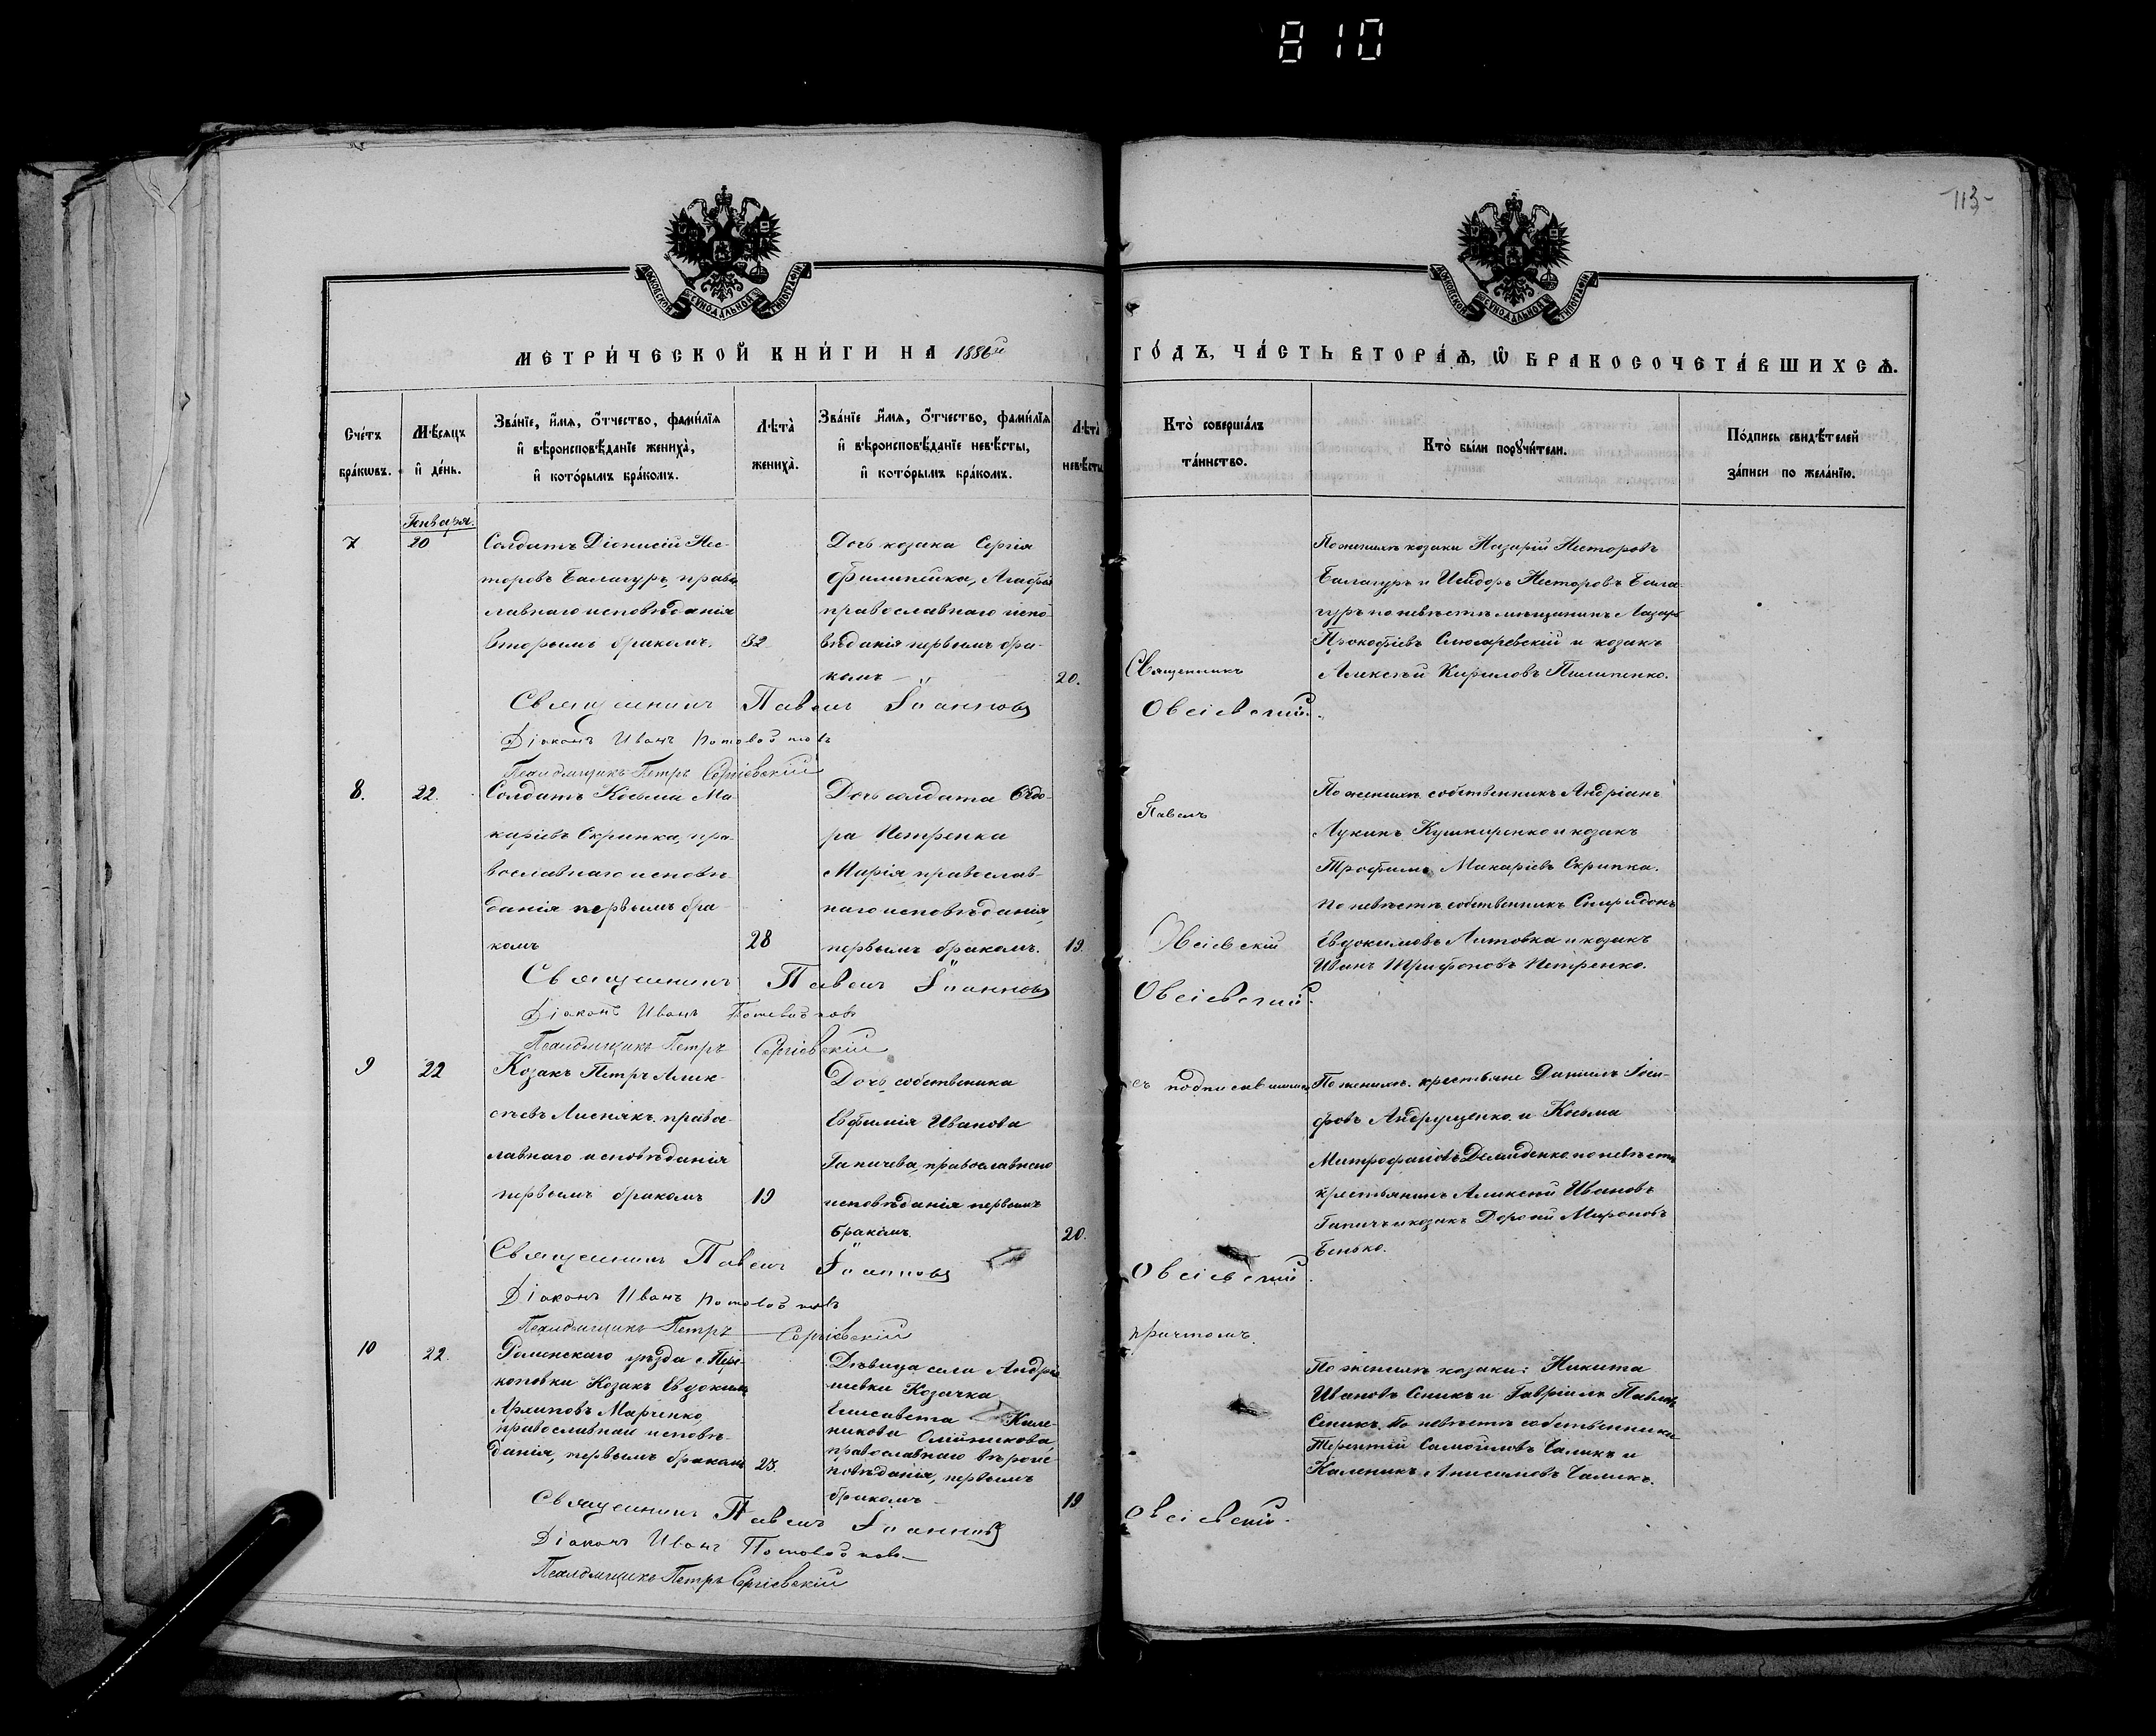 810
113
МОСКОВСКОЙ СѴНОДАЛЬНОЙ ТИПОГРАФІИ
МОСКОВСКОЙ СѴНОДАЛЬНОЙ ТИПОГРАФІИ
МЕТРИ́ЧЕСКОЙ КНИ́ГИ НА 1886й
ГО́ДЪ, ЧА́СТЬ ВТОРА́Ѧ, Ѡ҆ БРАКОСОЧЕТА́ВШИХСѦ.
Сче́тъ бра́кѡвъ.
Мѣ́сѧцъ и҆ де́нь.
Зва́нїе, и҆́мѧ, ѻ҆́тчество, фами́лїѧ
и҆ вѣроисповѣ́данїе жениха̀,
и҆ кото́рымъ бра́комъ.
Лѣта̀ жениха̀.
Зва́нїе, и҆́мѧ, ѻ҆́тчество, фами́лїѧ
и҆ вѣроисповѣ́данїе невѣ́сты,
и҆ кото́рымъ бра́комъ.
Лѣта̀ невѣ́сты
Кто̀ соверша́лъ та́инство.
Кто̀ бы́ли порꙋчи́тели.
По́дпись свидѣ́телей
за́писи по жела́нїю.
Генваря.
7
20
Солдатъ Діонисій Нес-
торовъ Балагуръ, право
славнаго исповѣданія
вторымъ бракомъ.
32
Дочь козака Сергія
Филипейка, Агафія
православнаго испо-
вѣданія первымъ бра-
комъ
20.
Священникъ
По женихѣ козаки Назарій Несторовъ
Балагуръ и Исидоръ Несторовъ Бала-
гуръ по невѣстѣ мѣщанинъ Лазарь
Прокофіевъ Слюсаревскій и козакъ
Алексѣй Кириловъ Пилипенко.
Священникъ Павелъ Іоанновъ Овсіевскій.
Діаконъ Иванъ
Псаломщикъ Петръ Сергіевскій
8.
22.
Солдатъ Косьма Ма-
каріевъ Скрипка, пра-
вославнаго исповѣ-
данія первымъ бра-
комъ
28
Дочь солдата Ѳедо-
ра Петренка
Марія, православ-
наго исповѣданія,
первымъ бракомъ.
19.
Павелъ
Овсіевскій
По женихѣ собственникъ Андріанъ
Лукинъ Кушниренко и козакъ
Трофимъ Макаріевъ Скрипка.
По невѣстѣ собственникъ Спиридонъ
Евдокимовъ Литовка и козакъ
Иванъ Трифоновъ Петренко.
Священникъ Павелъ Іоанновъ Овсіевскій.
Діаконъ Иванъ
Псаломщикъ Петръ Сергіевскій
9
22
Козакъ Петръ Алек-
сѣевъ Лиснякъ, право-
славнаго исповѣданія
первымъ бракомъ
19
Дочь собственика
Евфимія Иванова
Гапичева, православнаго
исповѣданія первымъ
бракомъ.
20.
съ подписавшимся
По женихѣ крестьяне Даніилъ Іоси-
фовъ Андрущенко и Косьма
Митрофановъ Демиденко, по невѣстѣ
крестьянинъ Алексѣй Ивановъ
Гапичъ и козакъ Дорофій Мироновъ
Бенько.
Священникъ Павелъ Іоанновъ Овсіевскій.
Діаконъ Иванъ
Псаломщикъ Петръ Сергіевскій
причтомъ.
10
22.
Роменскаго уѣзда с. Пере-
коповки Козакъ Евдокимъ
Архиповъ Марченко,
православнаго исповѣ-
данія, первымъ бракомъ
23.
Дѣвица села Андрія
шевки Козачка
Елисавета Кале-
никова Олійникова,
православнаго вѣроис
повѣданія, первымъ
бракомъ
19
По женихѣ козаки: Никита
Ивановъ Сеникъ и Гавріилъ Павловъ
Сеникъ. По невѣстѣ собственники
Терентій Самойловъ Чаликъ и
Каленикъ Анисимовъ Чаликъ.
Священникъ Павелъ Іоанновъ Овсіевскій.
Діаконъ Иванъ
Псаломщикъ Петръ Сергіевскій